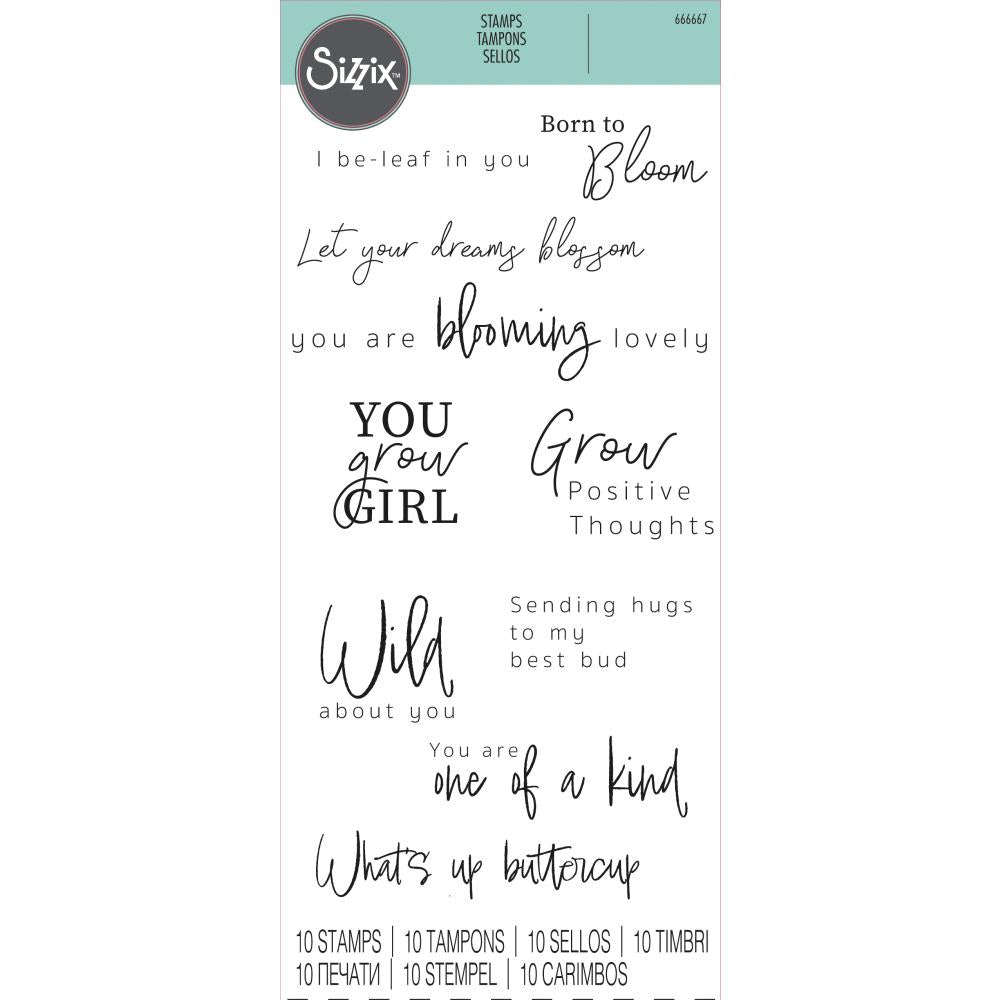 STAMPS
TAMPONS
SELLOS
666667
Sizzix™
Born to
Bloom
I be-leaf in you
Let your dreams blossom
you are blooming lovely
YOU
grow
GIRL
Grow
Positive
Thoughts
Wild
about you
Sending hugs
to my
best bud
You are
one of a kind
What's up buttercup
10 STAMPS | 10 TAMPONS | 10 SELLOS | 10 TIMBRI
10 ПЕЧАТИ | 10 STEMPEL | 10 CARIMBOS